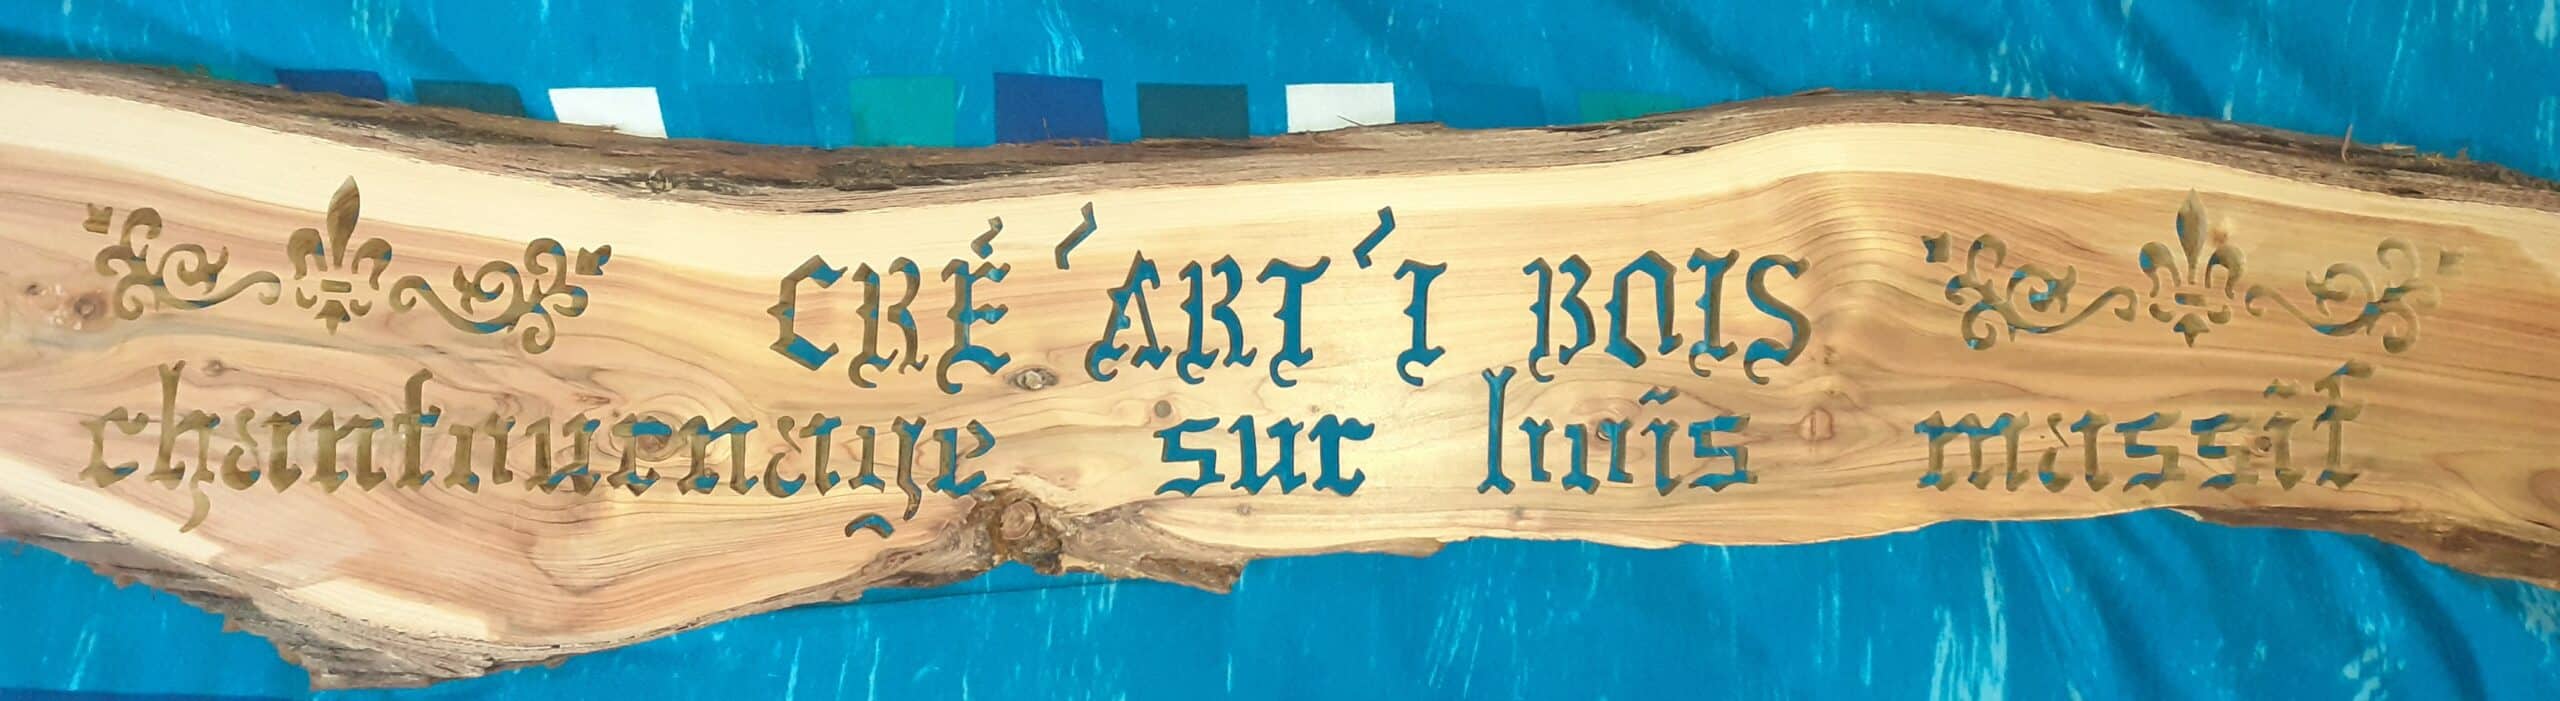 CRÉ'ART'I BOIS
chantournage sur bois massif